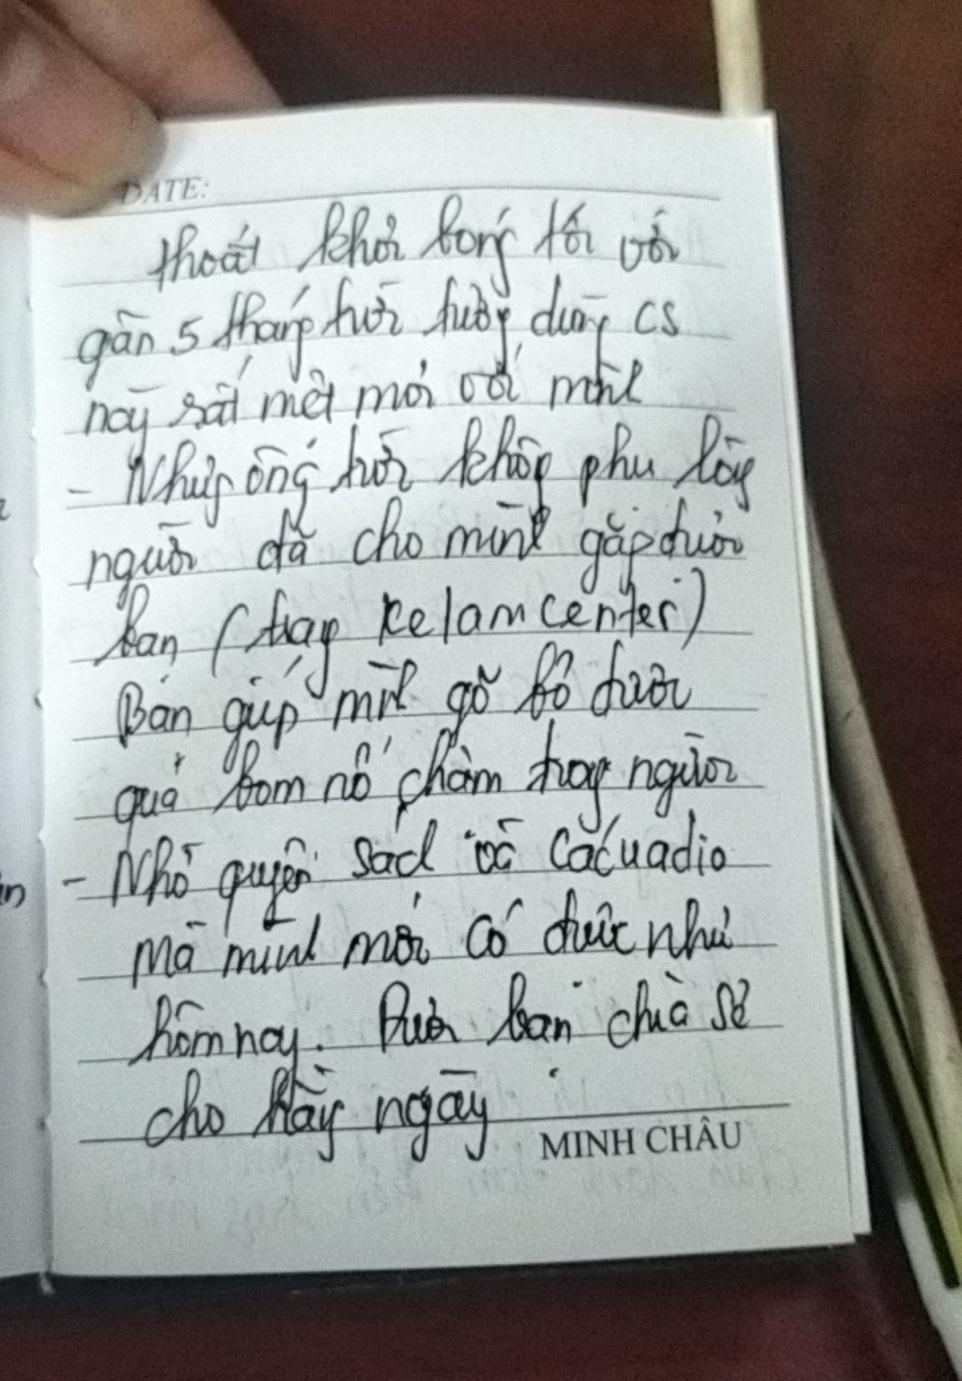 DATE:
thoát khỏi bóng tối với
gần 5 tháng trời tưởng dừng cs
này rất mệt mỏi với mình
- Nhưng ông trời không phụ lòng
người đã cho mình gặp được
bạn (trang Relamcenter)
Bạn giúp mình gỡ bỏ được
quả bom nổ chậm trong người
- Nhờ quyển sách và các uadio
mà mình mới có được như
hôm nay. Được bạn chia sẻ
cho hằng ngày
MINH CHÂU